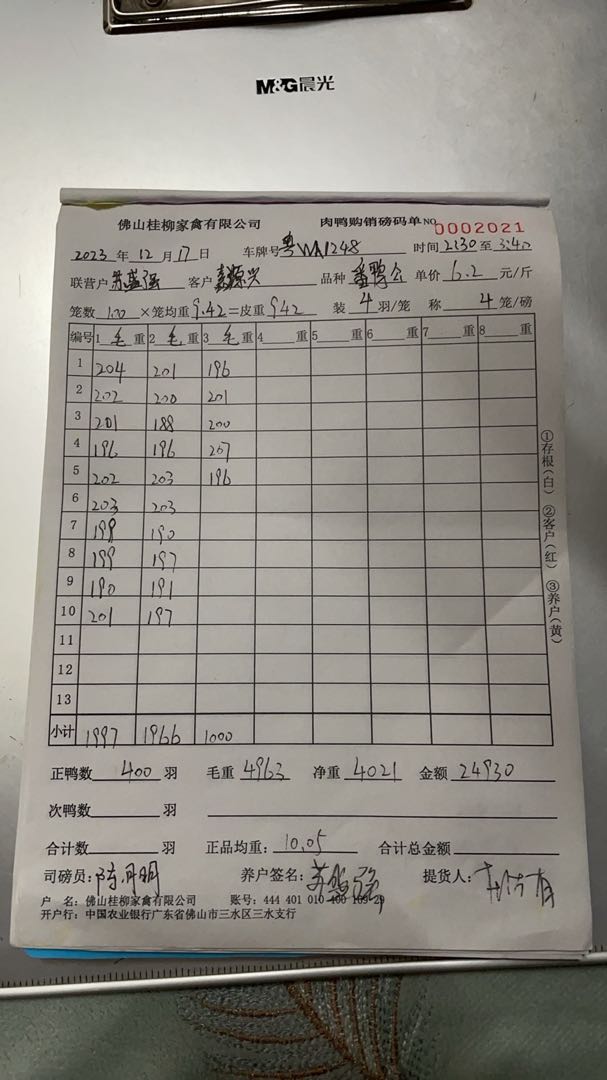 M&G晨光
佛山桂柳家禽有限公司 肉鸭购销磅码单 NO 0002021
2023 年 12 月 17 日 车牌号 粤WA1248 时间 2:30 至 3:40
联营户 苏盛强 客户 源兴 品种 番鸭公 单价 6.2 元/斤
笼数 100 ×笼均重 9.42 =皮重 942 装 4 羽/笼 称 4 笼/磅
编号 1 毛 重 2 毛 重 3 毛 重 4 重 5 重 6 重 7 重 8 重
1 204 201 196
2 202 200 201
3 201 188 200
4 196 196 207
5 202 203 196
6 203 203
7 198 190
8 199 197
9 190 191
10 201 197
11
12
13
小计 1997 1966 1000
①存根(白) ②客户(红) ③养户(黄)
正鸭数 400 羽 毛重 4963 净重 4021 金额 24930
次鸭数 羽
合计数 羽 正品均重: 10.05 合计总金额
司磅员: 养户签名: 苏盛强 提货人:
户 名: 佛山桂柳家禽有限公司 账号: 444 401 010 400 109 29
开户行: 中国农业银行广东省佛山市三水区三水支行